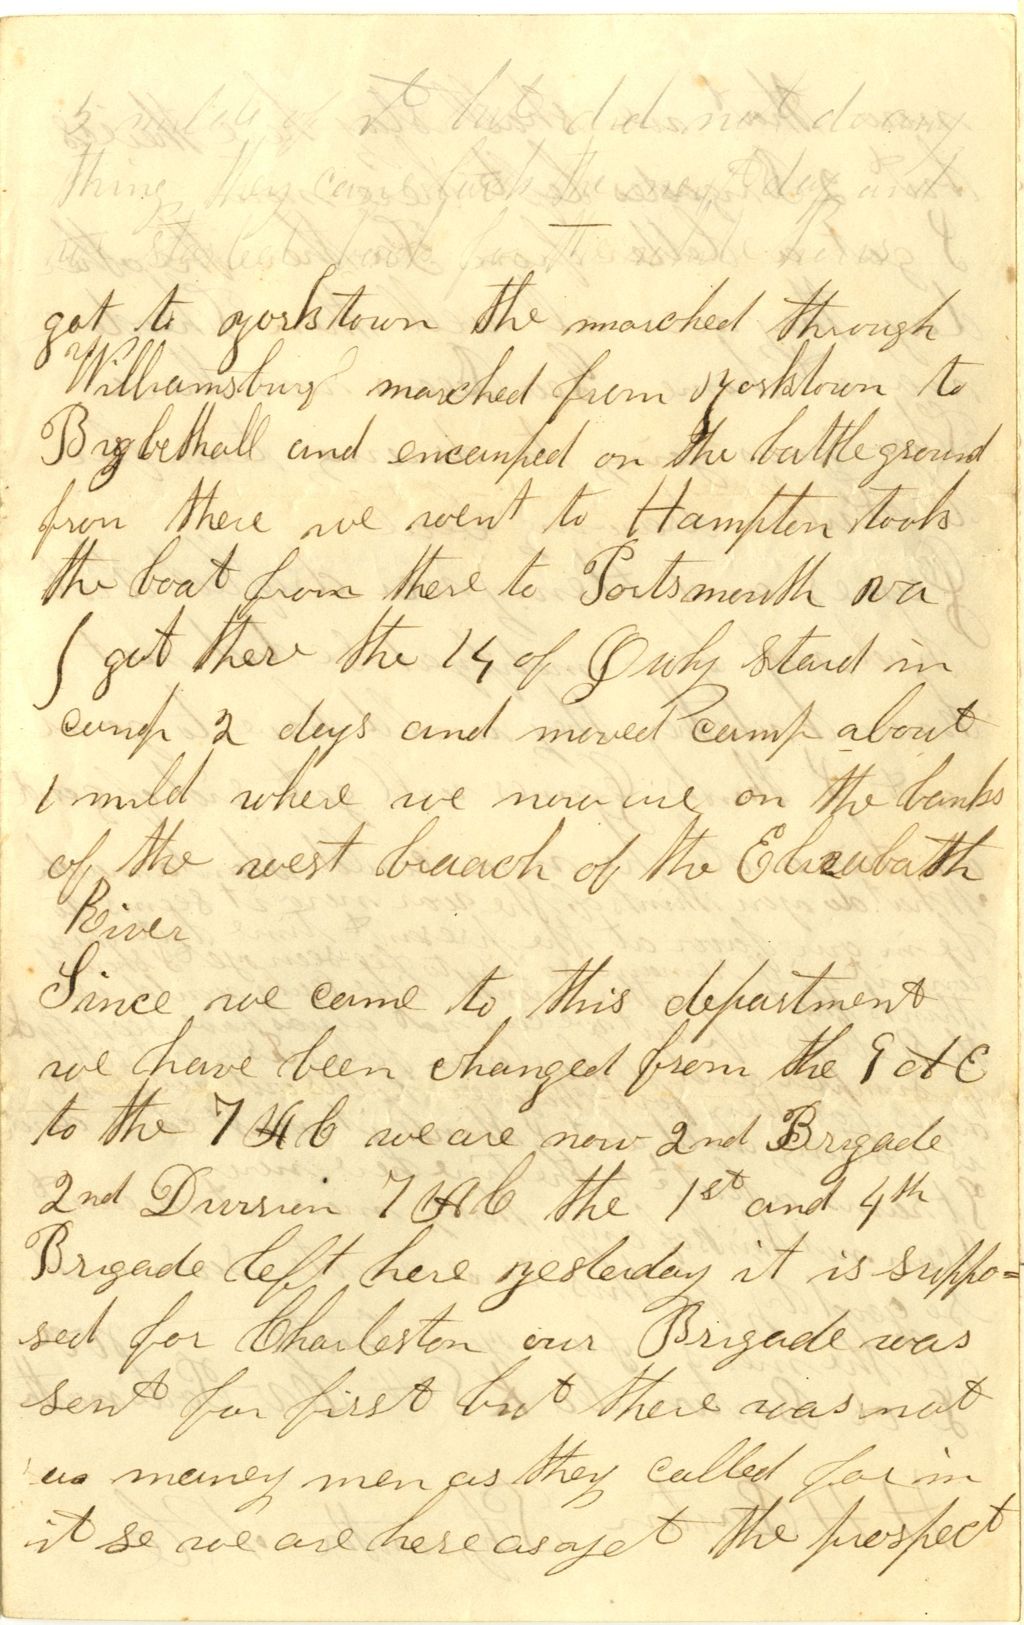 5 miles of it but did not do any
thing they came back the next day and
we started back for the
got to yorktown the marched through
Williamsburg marched from yorktown to
Bigbethall and encamped on the battleground
fron there we went to Hampton took
the boat from there to Portsmouth va
I got there the 14 of July staid in
camp 2 days and moved camp about
1 mild where we now are on the banks
of the west braach of the Elizabath
River
Since we came to this department
we have been changed from the 9 A C
to the 7 A C we are now 2nd Brigade
2nd Division 7 A C the 1st and 4th
Brigade left here yesterday it is suppo=
sed for Charleston our Brigade was
sent for first but there was not
as maney men as they called for in
it se we are here as yet the prospect